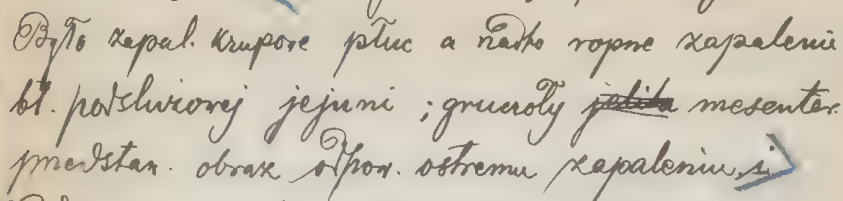 Było zapal. krupowe płuc a nadto ropne zapalenie
bł. podśluzowej jejuni ; gruczoły jelita mesenter.
przedstaw. obraz odpow. ostremu zapaleniu,